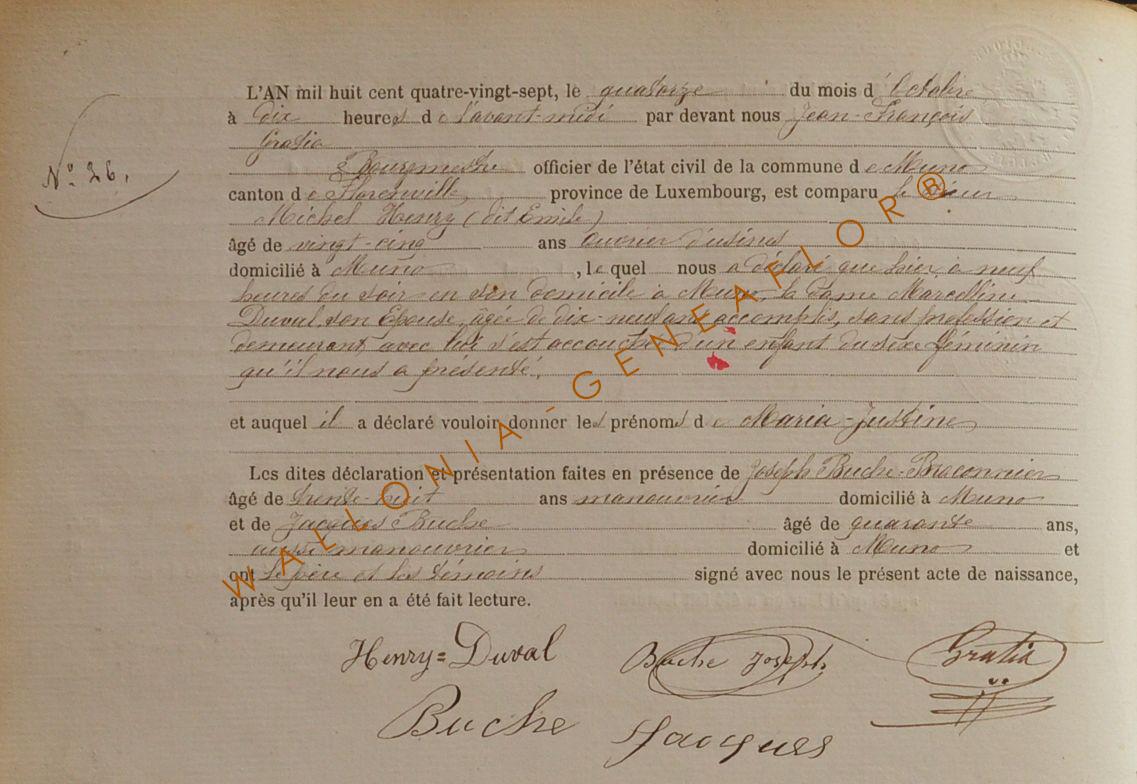 L'AN mil huit cent quatre-vingt-sept, le quatorze du mois d'Octobre
à Dix heures de l'avant-midi par devant nous Jean-François
Gratia
Bourgmestre officier de l'état civil de la commune de Muno
N° 26.
canton de Florenville province de Luxembourg, est comparu le sieur
Michel Henry (dit Emile)
âgé de vingt-cinq ans ouvrier d'usines
domicilié à Muno, lequel nous a déclaré que hier à neuf
heures du soir en son domicile à Muno, la dame Marcelline
Duval, son Epouse, âgée de dix-neuf ans accomplis, sans profession et
demeurant avec lui s'est accouchée d'un enfant du sexe féminin
qu'il nous a présenté.
et auquel il a déclaré vouloir donner les prénoms de Maria-Justine
Les dites déclaration et présentation faites en présence de Joseph Buche-Braconnier
âgé de trente-huit ans manouvrier domicilié à Muno
et de Jacques Buche âgé de quarante ans,
aussi manouvrier domicilié à Muno et
ont le père et les témoins signé avec nous le présent acte de naissance,
après qu'il leur en a été fait lecture.
Henry=Duval Buche Joseph Gratia
Buche Jacques
WALLONIA-GENEAFLOR®